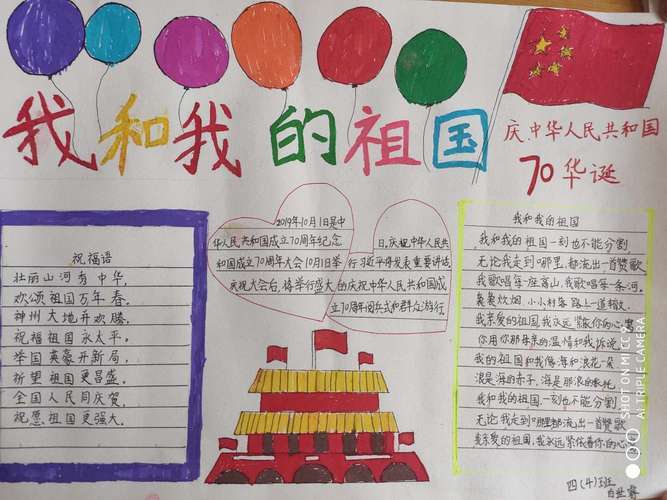 我和我的祖国
庆中华人民共和国
70华诞
祝福语
壮丽山河夸中华,
欢颂祖国万年春。
神州大地开欢腾,
祝福祖国永太平。
举国英豪开新局,
祈望祖国更昌盛。
全国人民同庆贺
祝愿祖国更强大。
2019年10月1日是中
华人民共和国成立70周年纪念
日,庆祝中华人民共
和国成立70周年大会10月1日举
行习近平将发表重要讲话,
庆祝大会后,将举行盛大的庆祝中华人民共和国成
立70周年阅兵式和群众游行。
我和我的祖国
我和我的祖国一刻也不能分割
无论我走到哪里,都流出一首赞歌
我歌唱每一座高山,我歌唱每一条河,
袅袅炊烟,小小村落,路上一道辙,
我亲爱的祖国,我永远紧依你的心窝
你用你那母亲的温情和我诉说
我的祖国和我像海和浪花一朵
浪是海的赤子,海是那浪的依托
我和我的祖国,一刻也不能分割
无论我走到哪里都流出一首赞歌
我亲爱的祖国,我永远紧依着你的心
四(4)班
SHOT ON MI CC
AI TRIPLE CAMERA